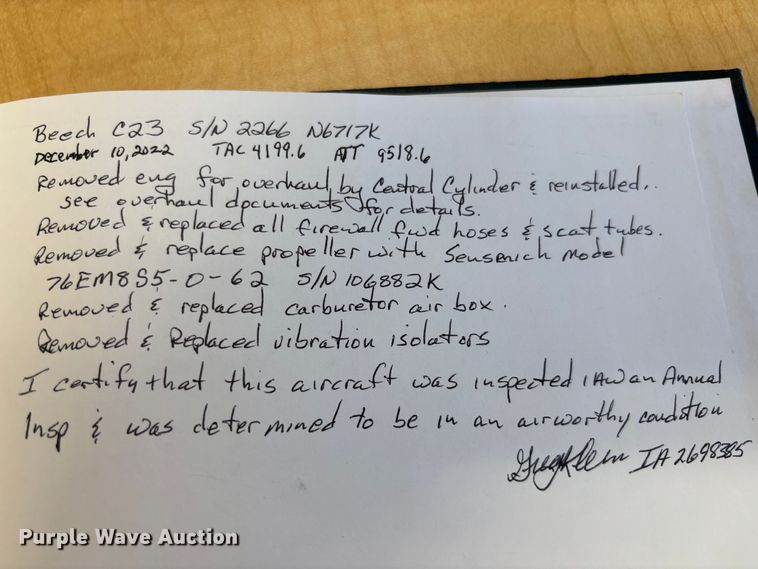 Beech C23 S/N 2266 N6717K
December 10, 2022 TAC 4199.6 ATT 9518.6
Removed eng for overhaul by Central Cylinder & reinstalled.
see overhaul documents for details.
Removed & replaced all firewall fwd hoses & scat tubes.
Removed & replace propeller with Sensenich Model
76EM8S5-0-62 S/N 106882K
Removed & replaced carburetor air box.
Removed & Replaced vibration isolators
I certify that this aircraft was inspected IAW an Annual
Insp & was determined to be in an airworthy condition
IA 2698385
Purple Wave Auction